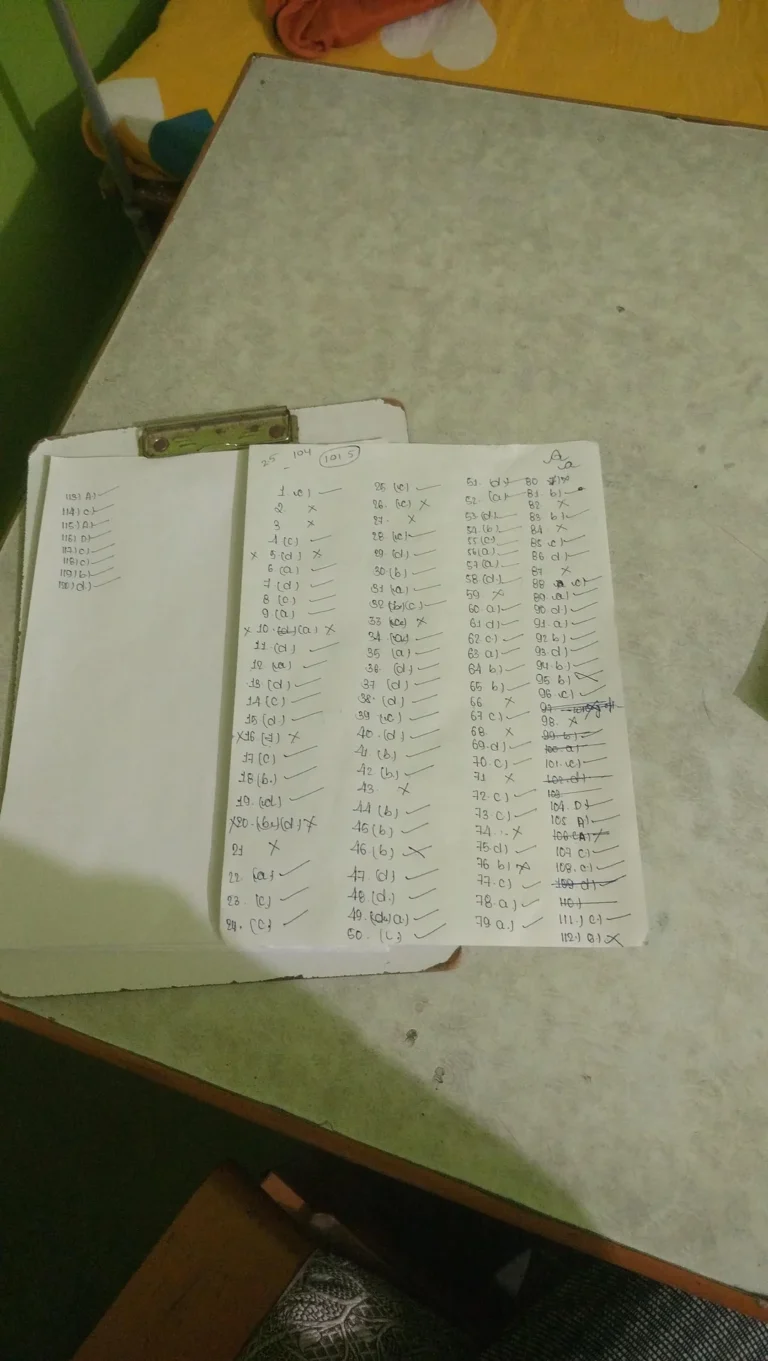 113) A)
114) C)
115) A)
116) D)
117) C)
118) C)
119) b)
120) d)
25 104 101.5
1. (c)
2 ×
3 ×
4 (c)
× 5. (d) ×
6 (a)
7. (d)
8 (c)
9. (a)
× 10. (a) ×
11. (d)
12. (a)
13. (d)
14 (c)
15 (d)
×16 ×
17 (c)
18 (b.)
19. (d.)
×20. (d) ×
21 ×
22. (a)
23. (c)
24. (c)
25. (c)
26. (c) ×
27. ×
28. (c)
29. (d)
30. (b)
31 (a)
32 (c)
33 ×
34
35 (a)
36. (d)
37 (d)
38. (d)
39. (c)
40. (d)
41. (b)
42 (b)
43. ×
44 (b)
45 (b)
46 (b) ×
47. (d)
48. (d.)
49. a)
50. (c)
51. (d)
52. (a)
53 (d)
54 (b)
55 (c)
56 (a)
57 (a)
58 (d)
59 ×
60. a)
61. d)
62. c)
63 a)
64 b)
65 b)
66 ×
67 c)
68. ×
69. d)
70. c)
71 ×
72. c)
73. c)
74. ×
75. d)
76 b) ×
77. c)
78. a)
79 a.)
80 ×
81. b)
82 ×
83 b)
84 ×
85. c)
86 d)
87 ×
88 c)
89. a)
90 d)
91. a)
92. b)
93. d)
94. b)
95 b) ×
96. c)
98. ×
99. b)
100. a)
101. c)
102. d)
103
104. D)
105 A)
106 A)
107 c)
108. c)
109 d)
110)
111.) C)
112.) ×